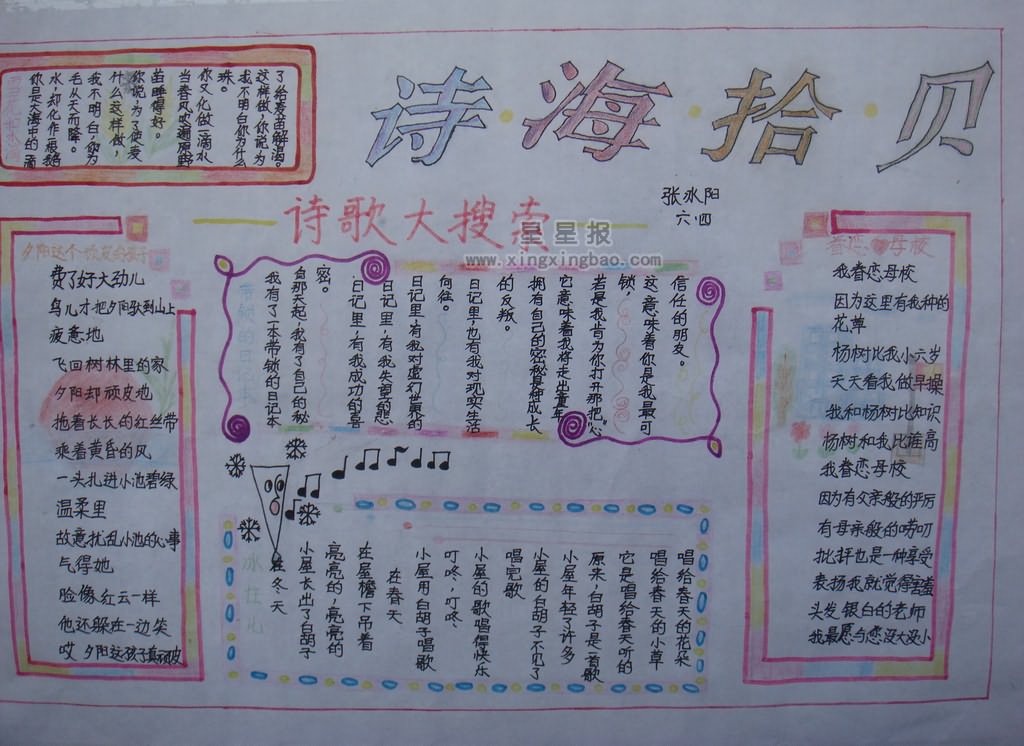 诗·海·拾·贝
张冰阳
六.四
你是大海中的滴
水,却化作
毛从天而降。
我不明白,你为
什么这样做,
你说:为了使麦
苗睡得好。
当春风吹遍原野
你又化做一滴水
珠。
我不明白你为什么
这样做,你说为
了给麦苗解渴。
诗歌大搜索
星星报
www.xingxingbao.com
夕阳这个顽皮的孩子
费了好大劲儿
鸟儿才把夕阳驮到山上
疲惫地
飞回树林里的家
夕阳却顽皮地
拖着长长的红丝带
乘着黄昏的风
一头扎进小池碧绿
温柔里
故意扰乱小池的心事
气得她
脸像红云一样
他还躲在一边笑
哎 夕阳这孩子真顽皮
带锁的日记本
我有了一本带锁的日记本
自那天起,我有了自己的秘
密。
日记里,有我成功的喜
日记里,有我失望
日记里,有我对虚幻世界的
向往。
日记里,也有我对现实生活
的反叛。
拥有自己的密秘是种成长
它意味着我将走出童年
若是我肯为你打开那把“心
锁”,
这意味着你是我最可
信任的朋友。
冰柱儿
在冬天
小屋长出了白胡子
亮亮的,亮亮的
在屋檐下吊着
在春天
小屋用白胡子唱歌
叮咚,叮咚
小屋的歌唱得很快乐
唱完歌
小屋的白胡子不见了
小屋年轻了许多
原来,白胡子是一首歌
它是唱给春天听的
唱给春天的小草
唱给春天的花朵
眷恋母校
我眷恋母校
因为这里有我种的
花草
杨树比我小六岁
天天看我做早操
我和杨树比知识
杨树和我比谁高
我眷恋母校
因为有父亲般的严厉
有母亲般的唠叨
批评也是一种享受
表扬我就觉得害羞
头发银白的老师
我最愿与您没大没小